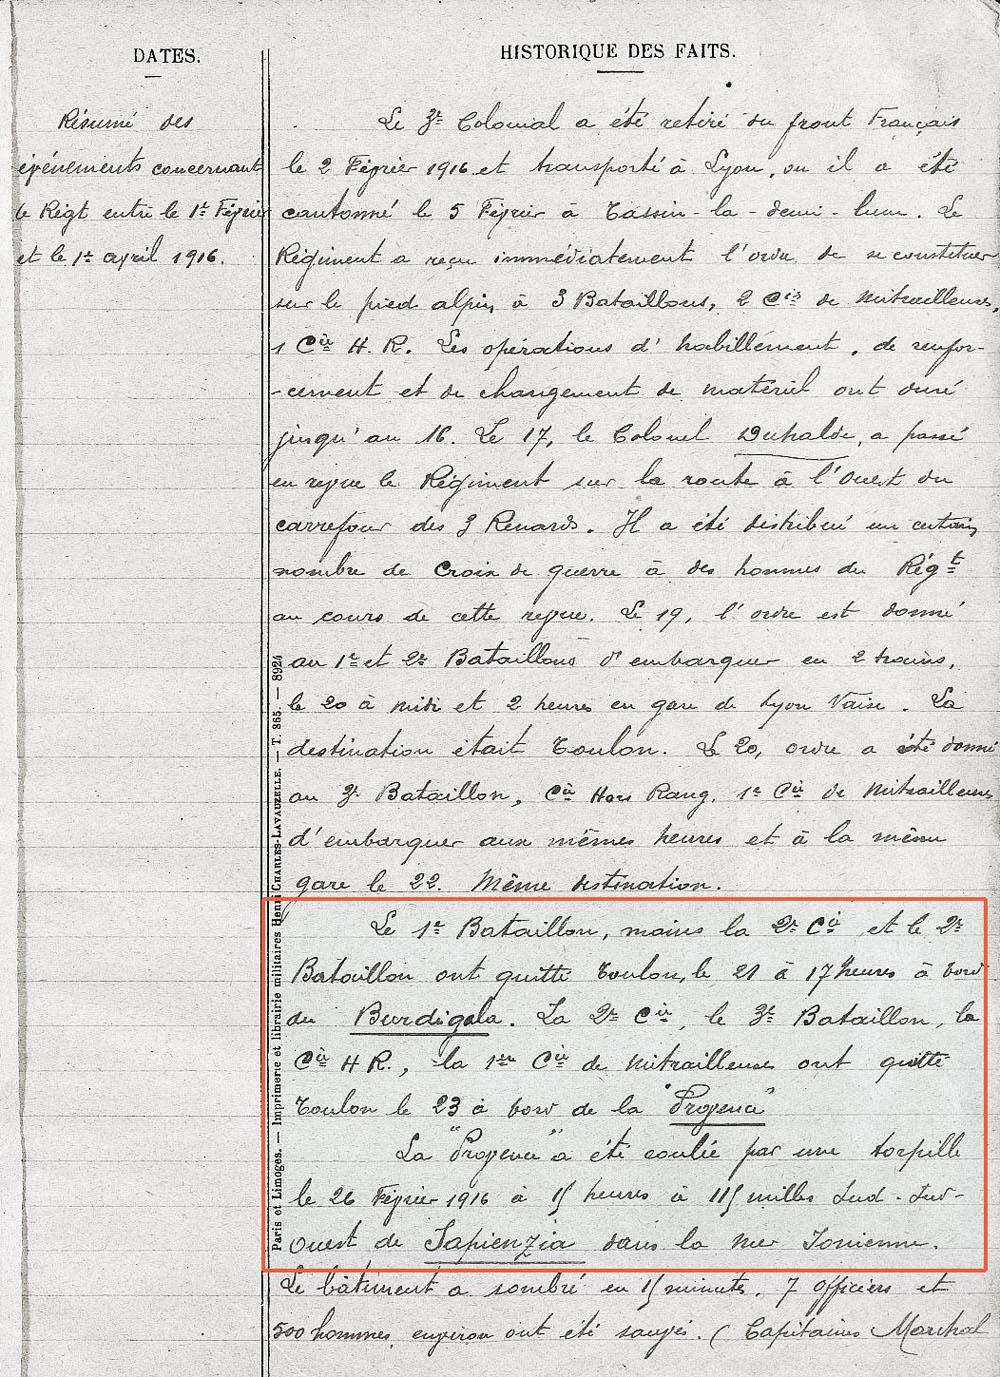 DATES.
HISTORIQUE DES FAITS.
Résumé des
événements concernant
le Régt entre le 1er Février
et le 1er avril 1916.
Le 3e Colonial a été retiré du front Français
le 2 Février 1916 et transporté à Lyon, ou il a été
cantonné le 5 Février à Tassin-la-demi-lune. Le
Régiment a reçu immédiatement l'ordre de se constituer
sur le pied alpin, à 3 Bataillons, 2 Cies de Mitrailleuses,
1 Cie H. R. Les opérations d'habillement, de renfor-
-cement et de changement de matériel ont duré
jusqu'au 16. Le 17, le Colonel Duhalde, a passé
en revue le Régiment sur la route à l'Ouest du
carrefour des 3 Renards. Il a été distribué un certain
nombre de Croix de guerre à des hommes du Régt
au cours de cette revue. Le 19, l'ordre est donné
au 1er et 2e Bataillons d'embarquer en 2 trains,
le 20 à midi et 2 heures en gare de Lyon Vaise. La
destination était Toulon. Le 20, ordre a été donné
au 3e Bataillon, Cie Hors Rang, 1e Cie de Mitrailleuses
d'embarquer aux mêmes heures et à la même
gare le 22. Même destination.
Le 1er Bataillon, moins la 2e Cie et le 2e
Bataillon ont quitté Toulon, le 21 à 17 heures à bord
du Burdigala. La 2e Cie, le 3e Bataillon, la
Cie H R., la 1ère Cie de Mitrailleuses ont quitté
Toulon le 23 à bord de la "Provence"
La "Provence" a été coulée par une torpille
le 26 Février 1916 à 15 heures à 115 milles Sud-Sud-
Ouest de Sapienzia dans la mer Ionienne.
Le bâtiment a sombré en 15 minutes. 7 officiers et
500 hommes environ ont été sauvés. (Capitaines Marchal
Paris et Limoges. — Imprimerie et librairie militaires Henri CHARLES-LAVAUZELLE. — T. 865. — 8924